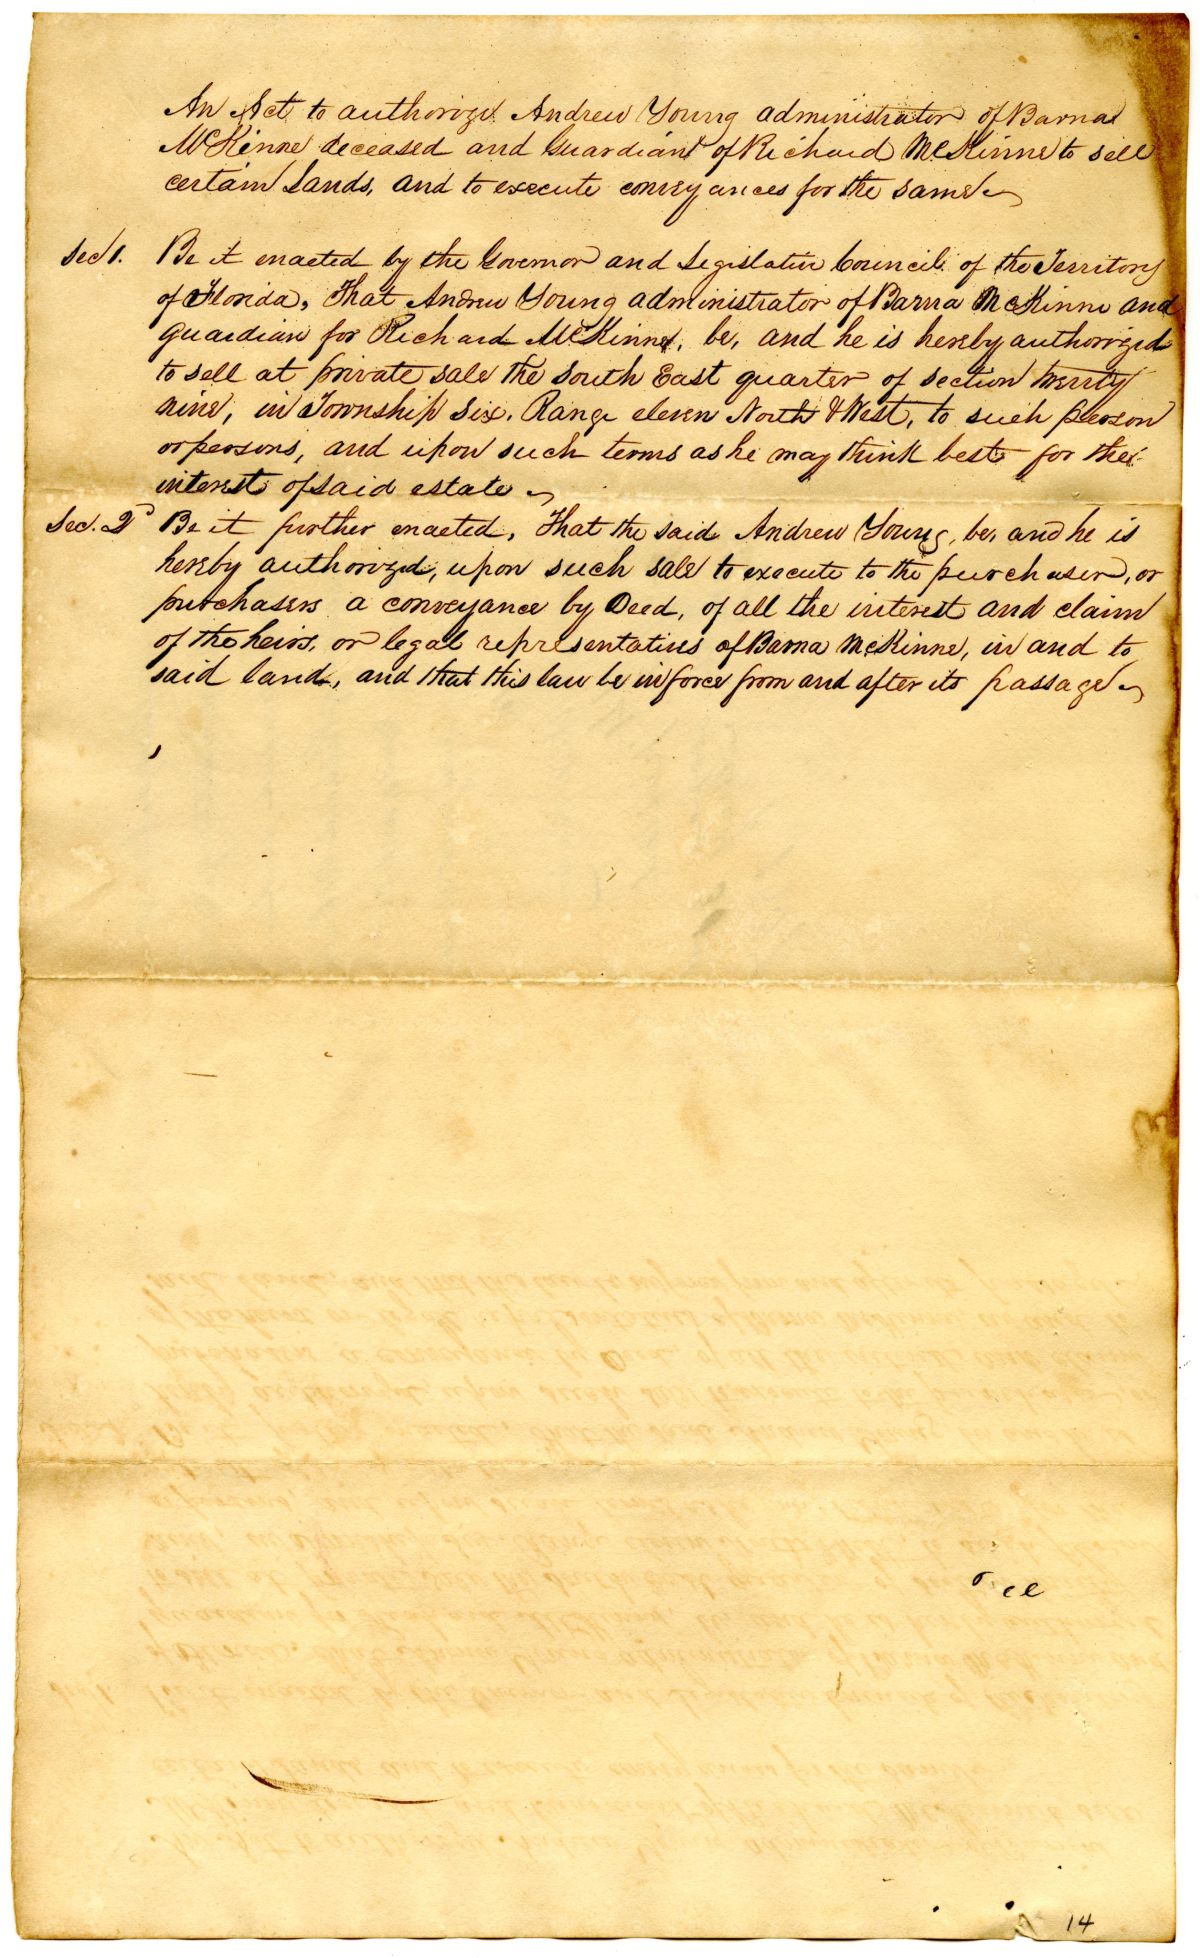 An Act to authorize Andrew Young administrator of Barna
McKinne deceased and Guardian of Richard McKinne to sell
certain Lands, and to execute conveyances for the same
Sec 1. Be it enacted by the Governor and Legislative Council of the Territory
of Florida, That Andrew Young administrator of Barna McKinne and
guardian for Richard McKinne, be, and he is hereby authorized
to sell at private sale the South East quarter of section twenty
nine, in Township Six, Range eleven North & West, to such person
or persons, and upon such terms as he may think best for the
interest of said estate
Sec. 2d Be it further enacted, That the said Andrew Young, be, and he is
hereby authorized, upon such sale to execute to the purchaser, or
purchasers a conveyance by Deed, of all the interest and claim
of the heirs, or legal representatives of Barna McKinne, in and to
said land, and that this law be in force from and after its passage
14